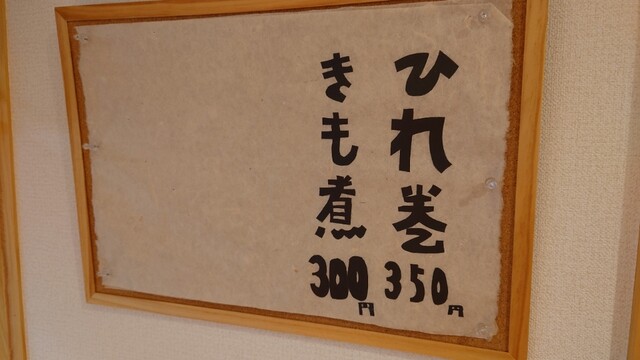 ひれ巻350円
きも煮300円